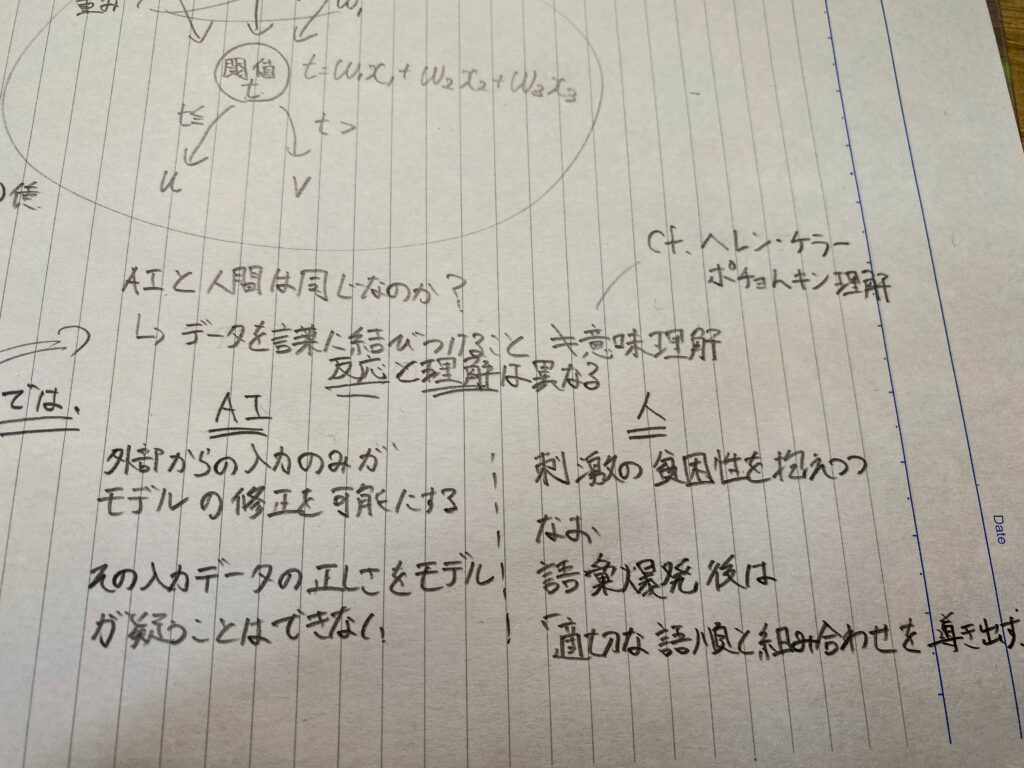 重み
w₁
閾値
t
t=w₁x₁+w₂x₂+w₃x₃
t≦
t>
u
v
cf. ヘレン・ケラー
ポチョムキン理解
AIと人間は同じなのか?
↳ データを言葉に結びつけること ≠ 意味理解
反応と理解は異なる
では、
AI
人
外部からの入力のみが
モデルの修正を可能にする
その入力データの正しさをモデル
が疑うことはできなく、
刺激の貧困性を抱えつつ
なお
語彙爆発後は
「適切な語順と組み合わせを導き出す
Date